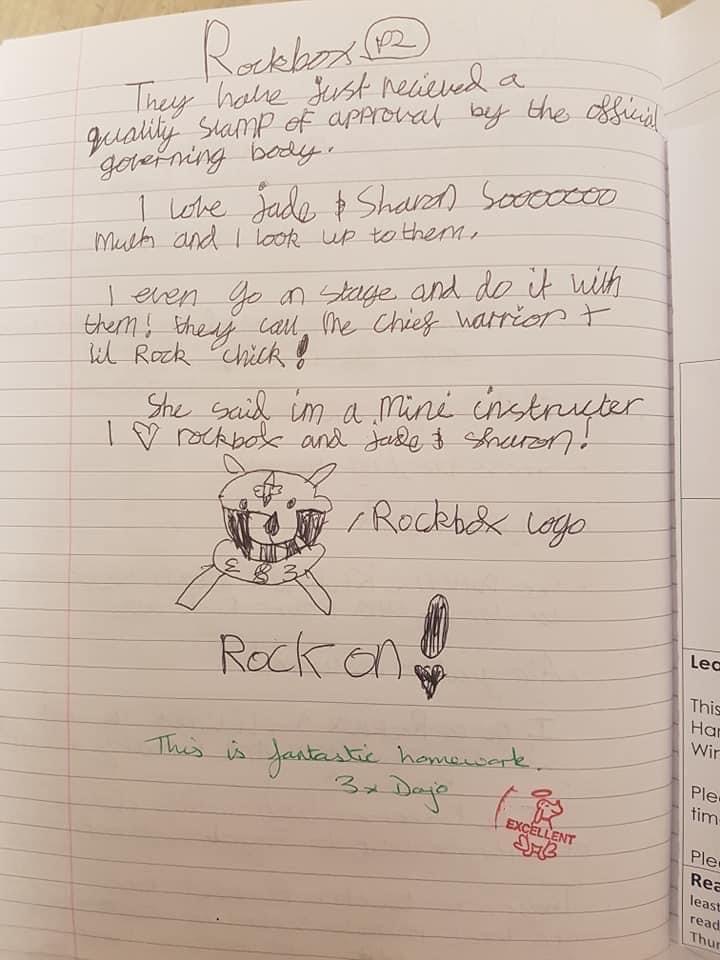 Rockbox P2
They have just recieved a
quality stamp of approval by the official
governing body.
I love jade & Sharon Sooooooo
much and I look up to them.
I even go on stage and do it with
them! they call me chief warrior +
lil Rock chick!
She said im a mini instructer
I ♡ rockbox and jade & sharon!
Rockbox logo
Rock on!
This is fantastic homework.
3x Dojo
EXCELLENT
Lea
This
Har
Wir
Plea
tim
Plea
Rea
least
read
Thur